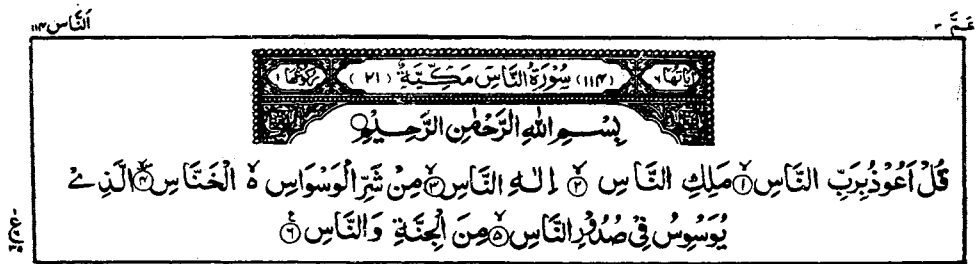 عَمَّ ٣٠
اَلنَّاس ١١٤
اٰيَاتُهَا ٦ (١١٤) سُوْرَةُ النَّاسِ مَكِّيَّةٌ (٢١) رُكُوْعُهَا ١
بِسْمِ اللّٰهِ الرَّحْمٰنِ الرَّحِيْمِ
قُلْ اَعُوْذُ بِرَبِّ النَّاسِ ۙ ١ مَلِكِ النَّاسِ ۙ ٢ اِلٰهِ النَّاسِ ۙ ٣ مِنْ شَرِّ الْوَسْوَاسِ ۙ ە الْخَنَّاسِ ۙ ٤ الَّذِىْ
يُوَسْوِسُ فِىْ صُدُوْرِ النَّاسِ ۙ ٥ مِنَ الْجِنَّةِ وَالنَّاسِ ٦ ع